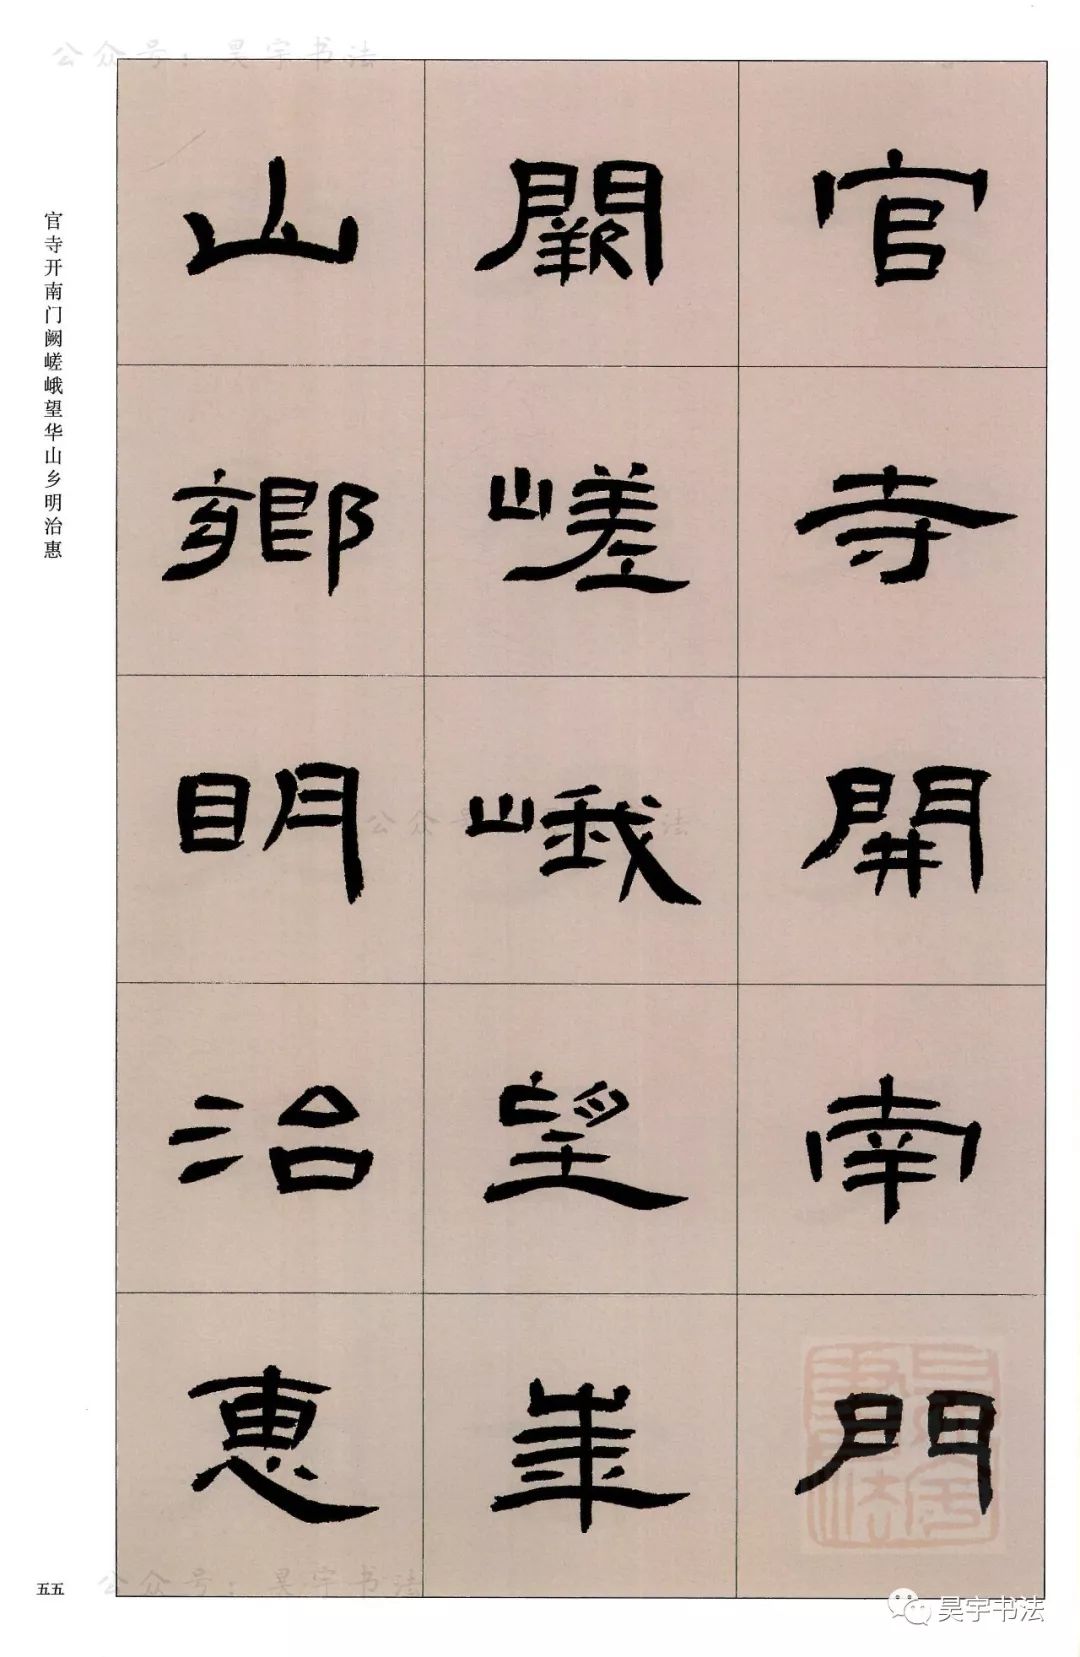 公众号：昊宇书法
官寺開南門
闕嵯峨望華
山鄉明治惠
官寺开南门阙嵯峨望华山乡明治惠
公众号
法
五五
公众号：昊宇书法
昊宇书法